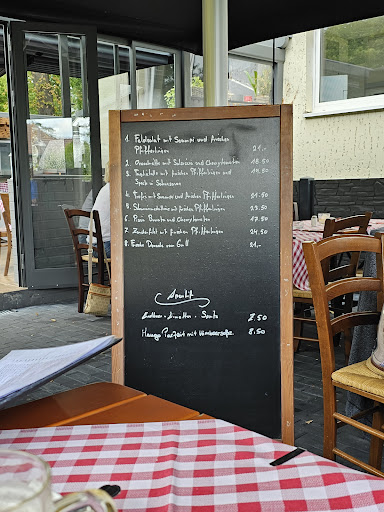 1. Feldsalat mit Scampi und frischen
Pfifferlingen 21.-
2. mit Salsiccia und Cherrytomaten 18.50
3. Tagliatelle mit frischen Pfifferlingen und
Speck in Sahnesauce 19.50
4. mit Scampi und frischen Pfifferlingen 21.50
5. mit frischen Pfifferlingen 23.50
6. Pizza Burrata und Cherrytomaten 17.50
7. Zanderfilet mit frischen Pfifferlingen 24.50
8. Dorade vom Grill 21.-
Aperitif
- Amaretto - Spritz 7.50
Mango Parfait mit 8.50